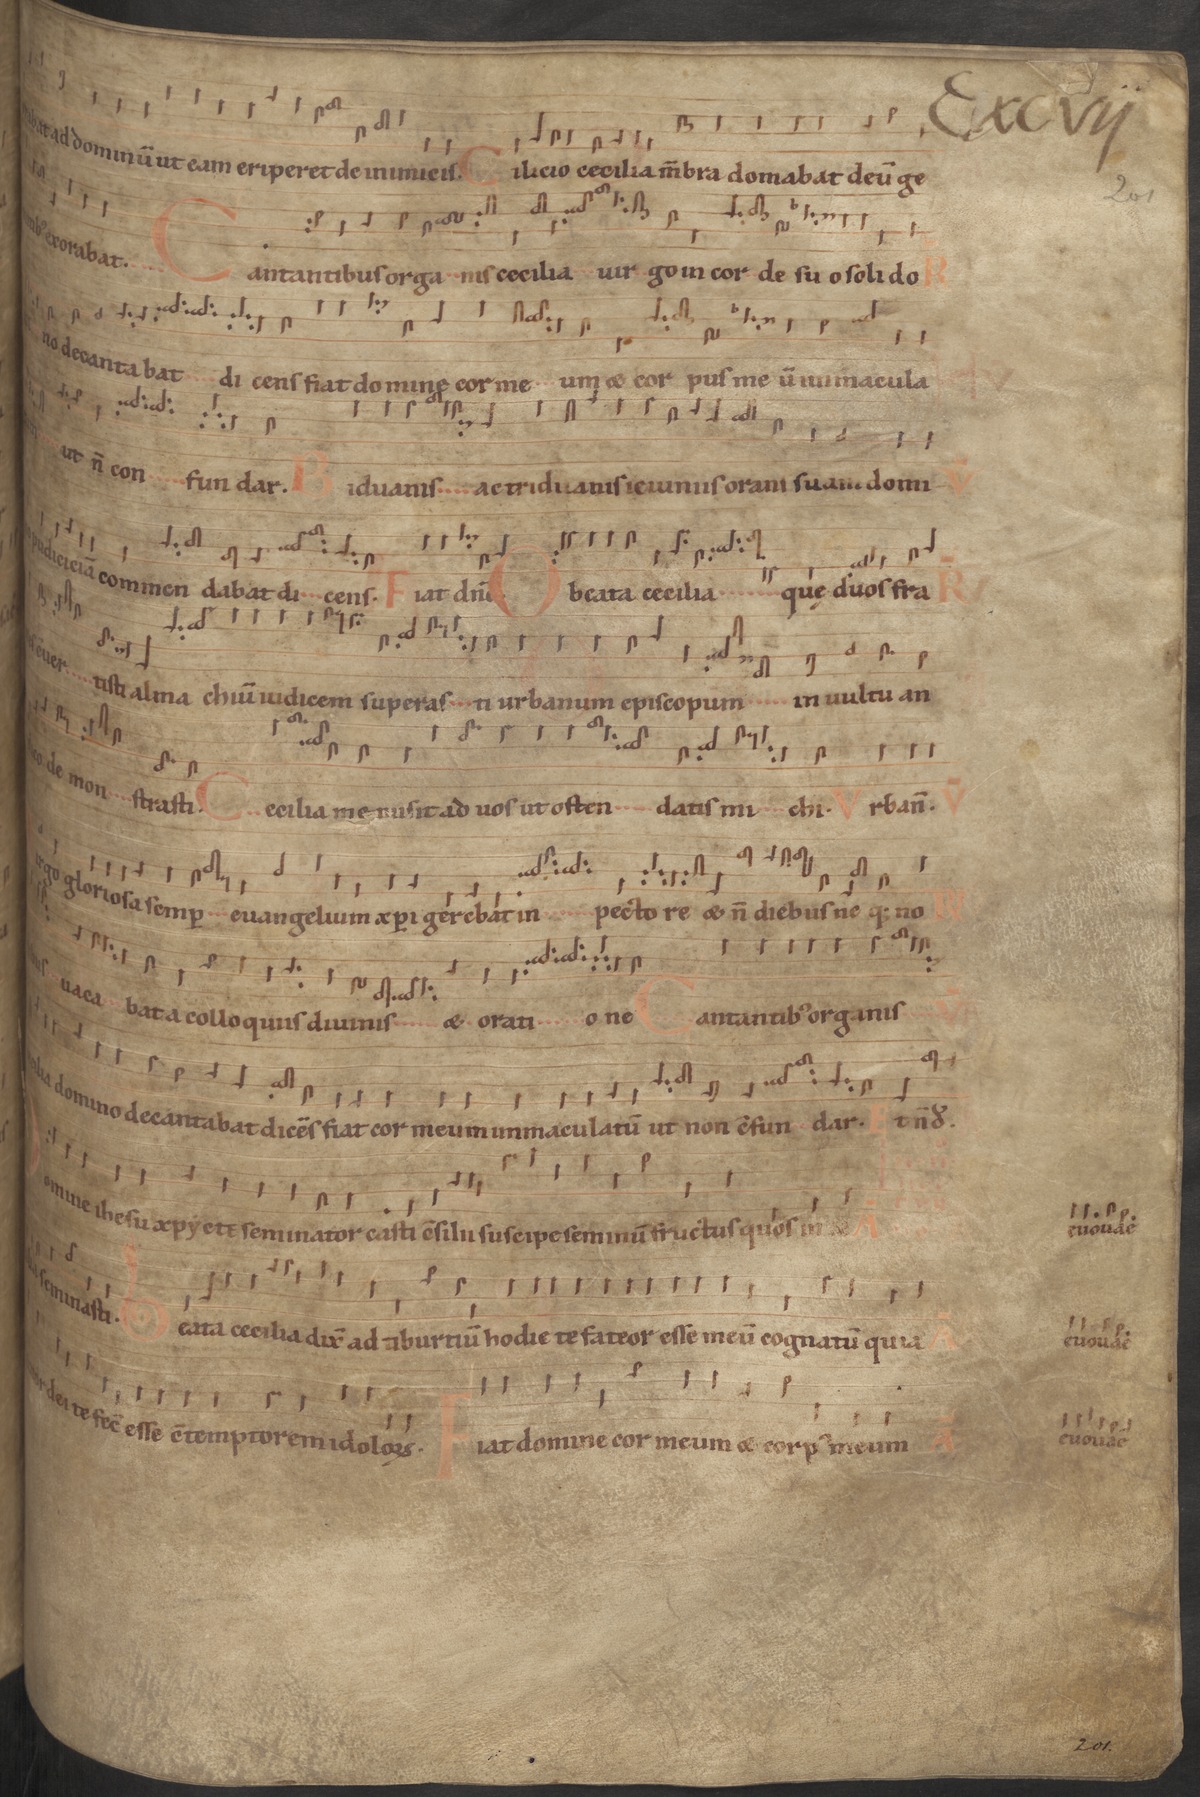 Excvij
201
bat ad dominū ut eam eriperet de inimicis. Cilicio cecilia m̄bra domabat deū ge
exorabat. Cantantibus organis cecilia uirgo in corde suo soli do R
no decantabat dicens fiat domine cor meum & corpus meū inmacula V
ut n̄ confundar. Biduanis ac triduanis ieiuniis orans suam domi V
pudiciciā commendabat dicens. Fiat dn̄e O beata cecilia quę duos fra R
euertisti almachiū iudicem superasti urbanum episcopum in uultu an
co demonstrasti. Cecilia me misit ad uos ut ostendatis michi Urban̄. V
irgo gloriosa semp euangelium xpi gerebat in pectore & n̄ diebus neq; no
uacabat a colloquiis diuinis & oratione Cantantibꝰ organis V
domino decantabat dicēs fiat cor meum inmaculatū ut non c̄fundar. t n̄
omine ihesu xpy etē seminator casti c̄silii suscipe seminū fructus quos in A
euouae
seminasti. Beata cecilia dix̄ ad tiburtiū hodie te fateor esse meū cognatū quia A
euouae
dei te fec̄ esse c̄temptorem idoloꝝ. Fiat domine cor meum & corpꝰ meum A
euouae
201.